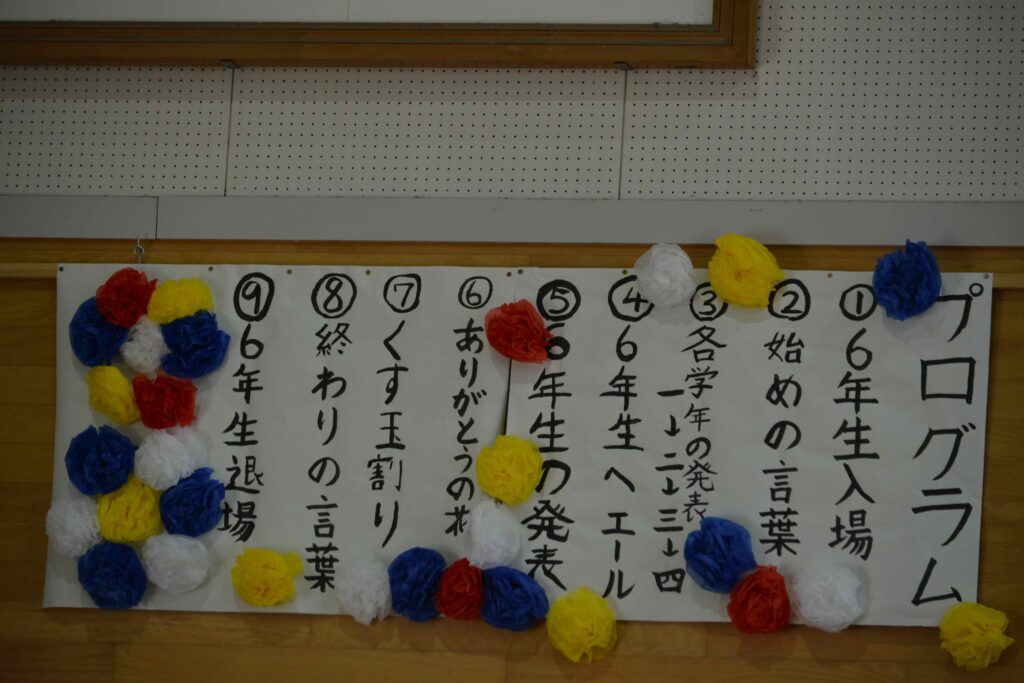 プログラム
①6年生入場
②始めの言葉
③各学年の発表
一→二→三→四
④6年生へエール
⑤6年生の発表
⑥ありがとうの花
⑦くす玉割り
⑧終わりの言葉
⑨6年生退場